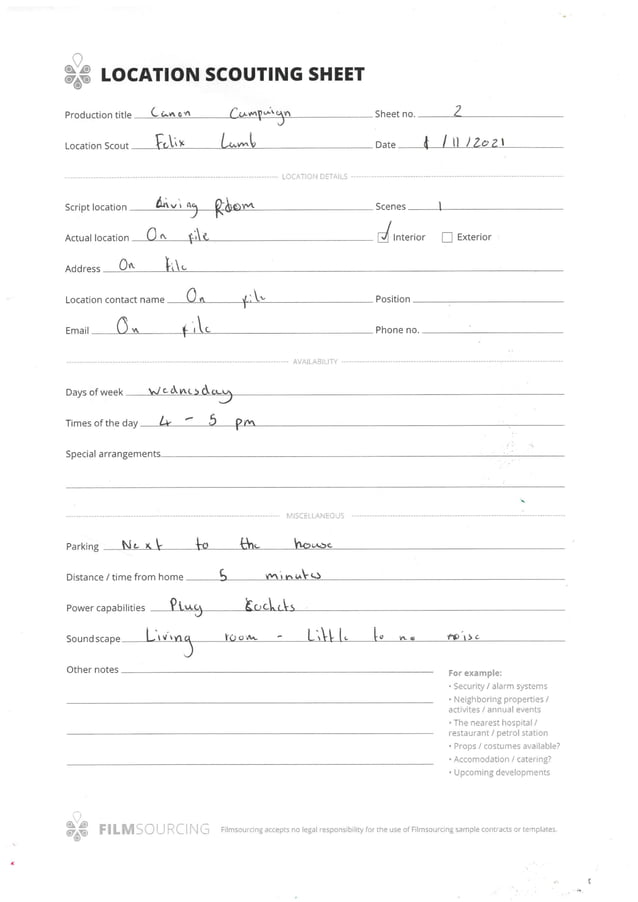 LOCATION SCOUTING SHEET
Production title Canon Campaign Sheet no. 2
Location Scout Felix Lamb Date /11/2021
LOCATION DETAILS
Script location Living Room Scenes 1
Actual location On file Interior Exterior
Address On file
Location contact name On file Position
Email On file Phone no.
AVAILABILITY
Days of week Wednesday
Times of the day 4 - 5 pm
Special arrangements
MISCELLANEOUS
Parking Next to the house
Distance / time from home 5 minutes
Power capabilities Plug Sockets
Soundscape Living room - Little to no noise
Other notes
For example:
• Security / alarm systems
• Neighboring properties /
activites / annual events
• The nearest hospital /
restaurant / petrol station
• Props / costumes available?
• Accomodation / catering?
• Upcoming developments
FILMSOURCING Filmsourcing accepts no legal responsibility for the use of Filmsourcing sample contracts or templates.